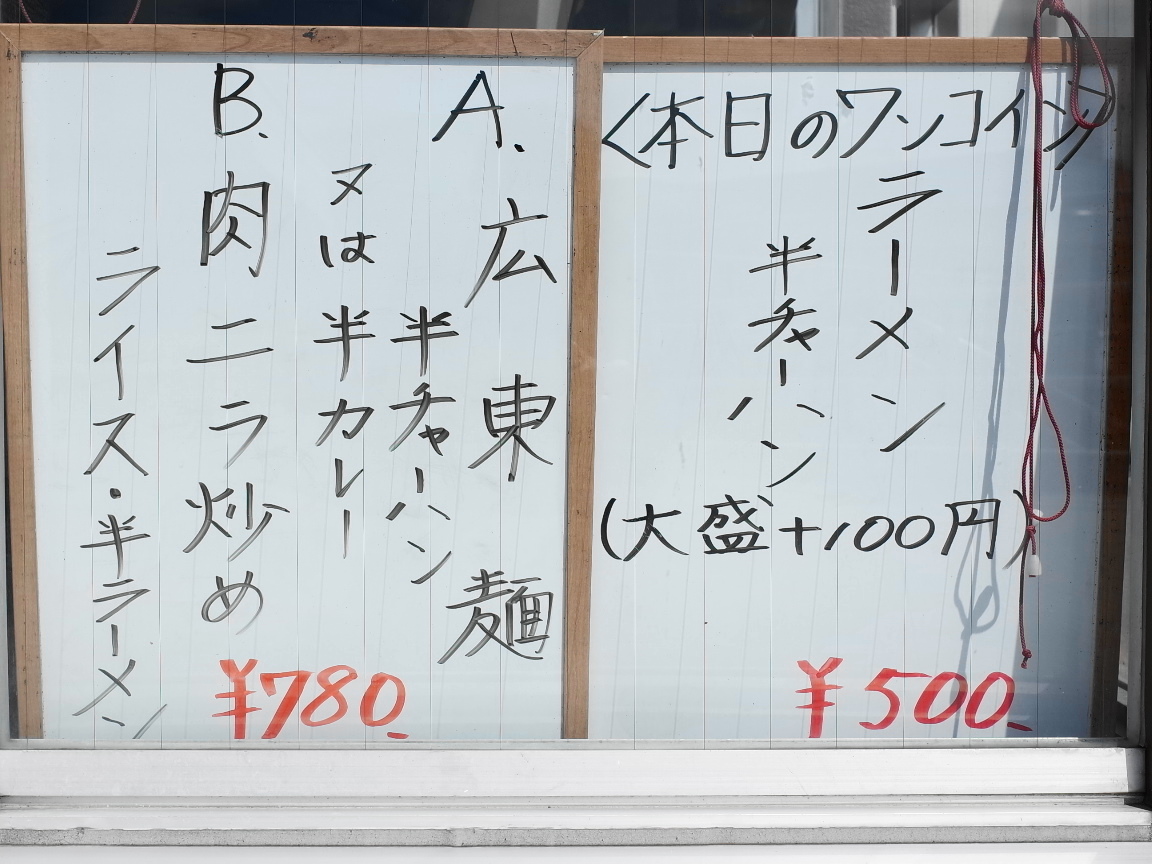 〈本日のワンコイン〉
ラーメン
半チャーハン
(大盛+100円)
¥500-
A. 広東麺
半チャーハン
又は半カレー
B. 肉ニラ炒め
ライス・半ラーメン
¥780-